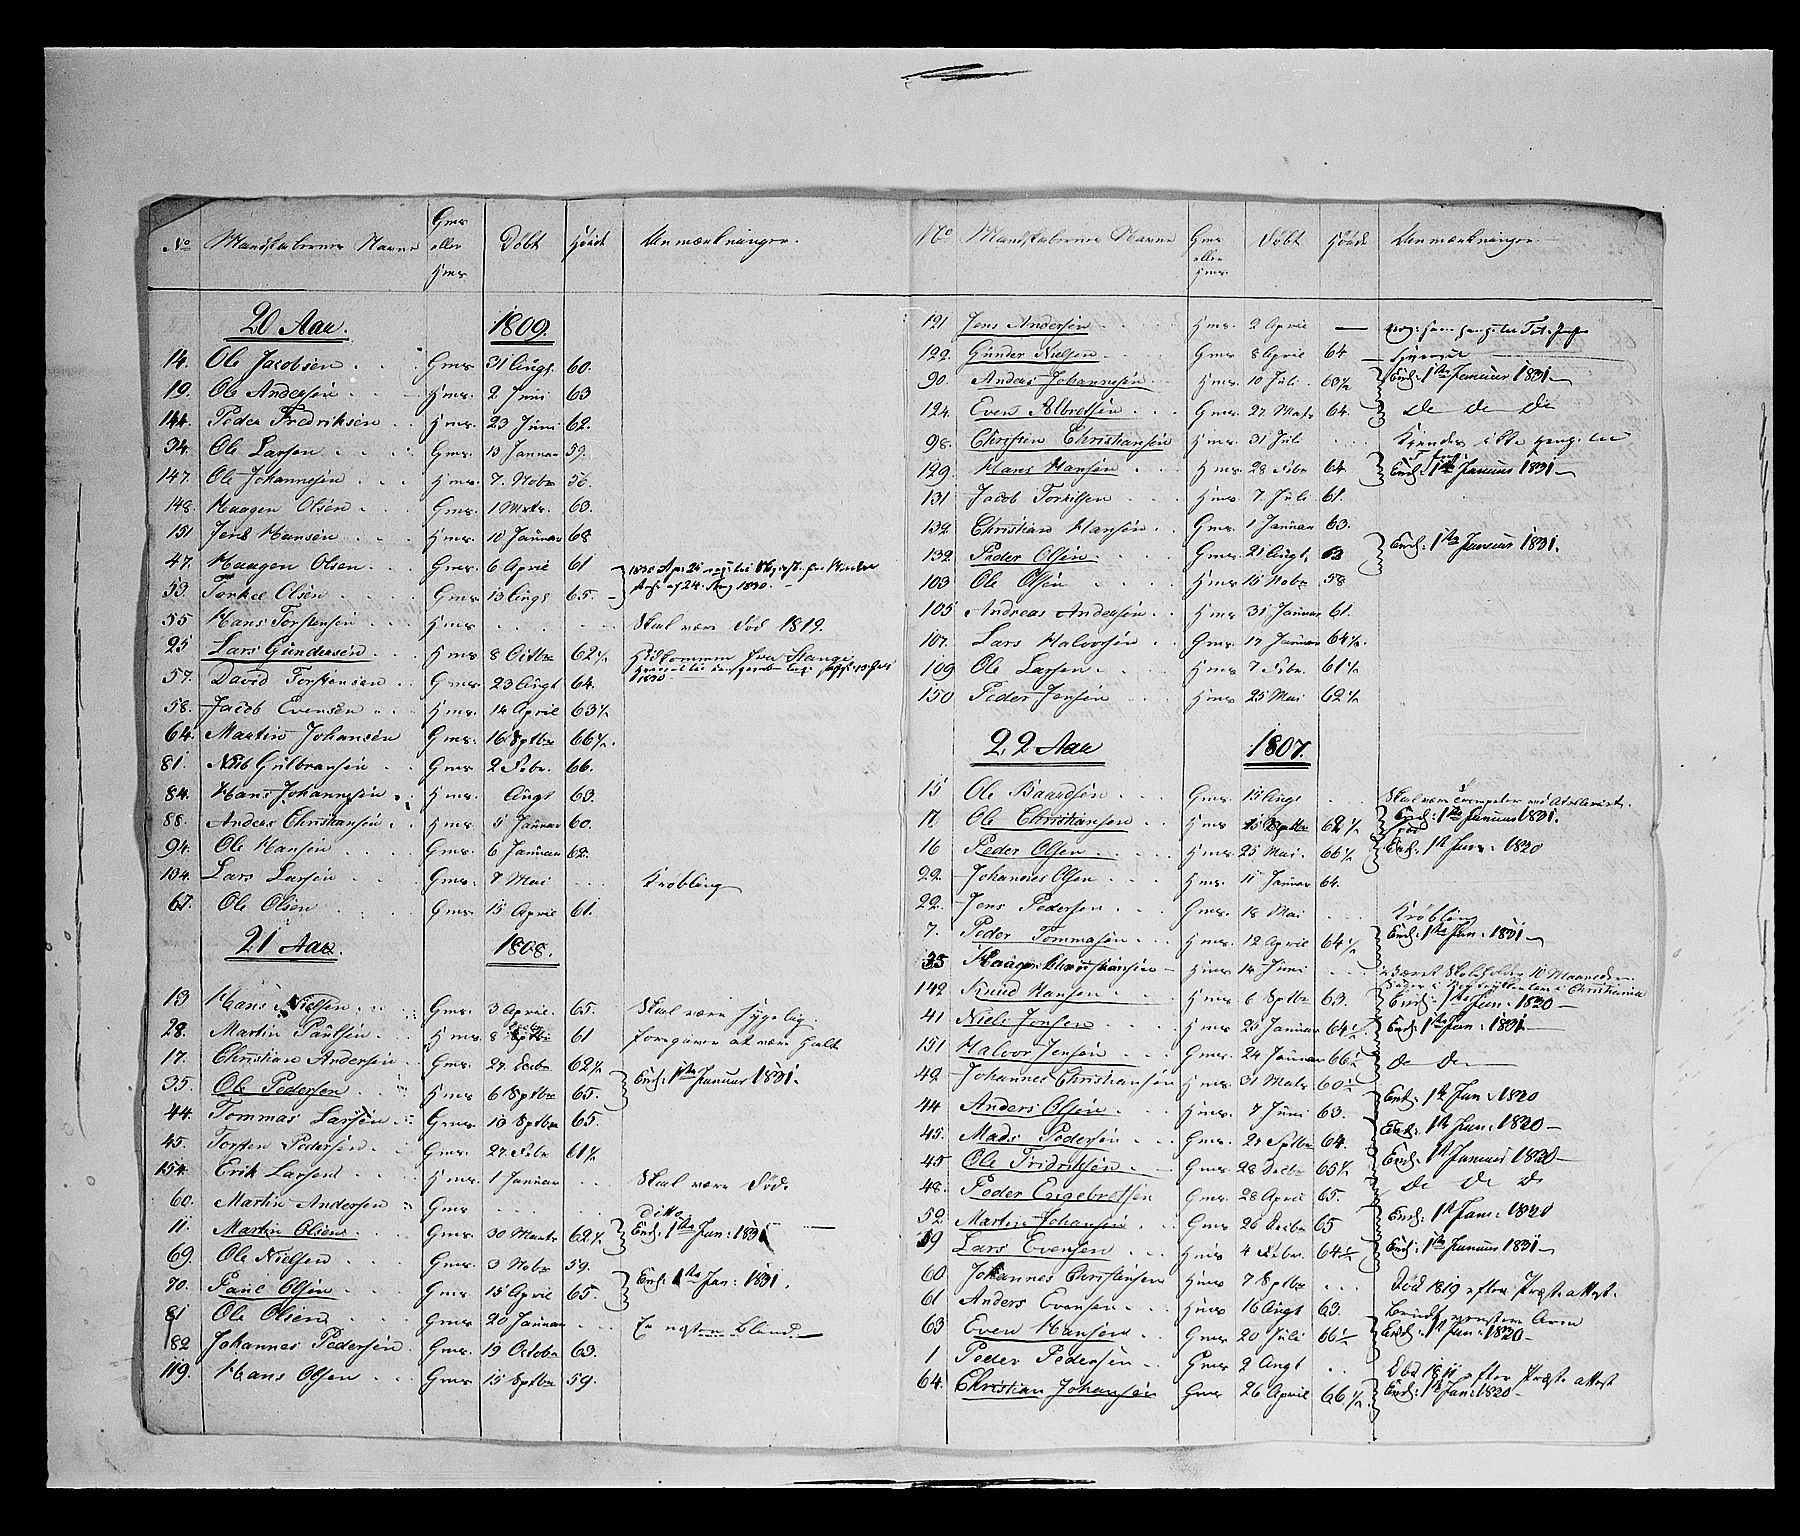 No Mandskabernes Navne Gms eller Hms Döbt Höide Anmærkninger.
20 Aar. 1809.
14. Ole Jacobsen Gms 31 Augt 60.
19. Ole Andersen Hms. 2 Juni 63
144. Peder Fredriksen Hms. 23 Juni 62.
34. Ole Larsen Gms. 13 Januar 59.
147. Ole Johannesen Hms. 7. Nobr 56.
148. Haagen Olsen Gms. 1 Marts. 63.
151 Jens Hansen Hms. 10 Januar 68
47. Haagen Olsen Gms. 6 April 61
53. Torkel Olsen Gms. 13 Augt 65.
55 Hans Torstensen Hms Skal være Död 1819.
25 Lars Gundersen Hms 8 Octbr 62½ Hidkommen fra Stange
57. David Torstensen Gms. 23 Augt 64.
58. Jacob Evensen Hms. 14 April 63½
64. Martin Johansen Gms. 16 Sptbr 66½.
81. Nils Gulbransen Gms 2 Febr. 66.
84. Hans Johannesen Hms. Augt 63.
88. Anders Christiansen Hms. 5 Januar 60.
94. Ole Hansen Gms. 6 Januar 62.
134. Lars Larsen Gms. 7 Mai Kröbling
67. Ole Olsen Gms. 15 April 61.
21 Aar. 1808.
13 Hans Nielsen Gms. 3 April. 65. Skal være sygelig.
28. Martin Paulsen Hms. 8 61 foregiver at være Halt
17. Christian Andersen Gms. 27 Decbr 62½
35. Ole Pedersen Hms 6 Sptbr 65. Enrl: 1ste Januar 1831.
44. Tommas Larsen Gms. 13 Sptbr 65.
45. Torsten Pedersen Gms. 27 Febr 61½
154. Erik Larsen Hms. 1 Januar Skal være Död.
60. Martin Andersen Gms ditto
11. Martin Olsen Gms. 30 Marts 62½ Enrl: 1ste Jan: 1831
69. Ole Nielsen Gms. 3 Nobr 59.
70. Paul Olsen Gms 15 April 65. Enrl: 1ste Jan: 1831.
81 Ole Olsen Gms 20 Januar Er nesten Blind
182 Johannes Pedersen Gms. 19 Octobr 63.
119. Hans Olsen Gms 15 Sptbr 59.
No Mandskabernes Navne Gms eller Hms. Döbt Höide Anmærkninger
121 Jens Andersen Hms. 2 April
122. Gunder Nielsen Gms. 8 April 64
90. Anders Johannesen Hms. 10 Juli 63½ Enrl: 1ste Januar 1831
124. Even Albretsen Gms. 27 Mats 64. do do do
98. Christen Christiansen Hms. 31 Juli Kjendes ikke
129. Hans Hansen Hms. 28 Febr 64. Enrl: 1ste Januar 1831
131 Jacob Torkilsen Hms 7 Juli 61.
139. Christian Hansen Gms. 1 Januar 63.
132. Peder Olsen Gms. 21 Augt. 63 Enrl: 1ste Januar 1831.
103 Ole Olsen Hms 15 Nobr 58
105 Andreas Andersen Hms. 31 Januar 61.
107. Lars Halvorsen Gms. 17 Januar 64½.
109 Ole Larsen Hms 7 Febr. 61½
150 Peder Jensen Hms. 25 Mai 62½
22 Aar 1807.
15 Ole Baardsen Gms. 13 Augt Skal være Trompeter ved Artilleriet.
17. Ole Christiansen Hms 15 Sptbr 62½ Enrl: 1ste Januar 1831.
16 Peder Olsen Hms. 25 Mai. 66½ Enrl: 1st Janr. 1830
22. Johannes Olsen Hms. 11 Januar 64.
22. Jens Pedersen Gms. 18 Mai Kröbling
7. Peder Tommasen Hms. 12 April 64½ Enrl: 1ste Jan. 1831
35 Haagen Christiansen Hms 14 Juni
142 Knud Hansen Hms 6 Sptbr 63. Enrl: 1ste Jan: 1830
41 Niels Jonsen Hms. 25 Januar 64½ Enrl: 1ste Jan: 1831
151 Halvor Jensen Gms. 24 Januar 66½ do do
49. Johannes Christiansen Hms. 31 Mats 60½
44 Anders Olsen Hms. 7 Juni 63. Enrl: 1st Jan 1830
45. Mads Pedersen Gms. 27 Sptbr 64. Enrl: 1st Jan: 1830
45 Ole Fridriksen Gms. 28 Decbr 65½ Enrl: 1st Januar 1830
48. Peder Engebretsen Gms. 28 April 65. do do do
52 Martin Johansen Gms. 26 Decbr 65 Enrl: 1st Jan: 1830
59 Lars Evensen Hms 4 Febr. 64½ Enrl: 1ste Januar 1831
60 Johannes Christensen Hms 7 Sptbr Död 1819 efter Præste attest.
61 Anders Evensen Hms 16 Augt 63. venstre Arm
63 Even Hansen Gms. 20 Juli 66½ Enrl: 1st Jan: 1830
1 Peder Pedersen Gms 2 Augt Död 1811 efter Præste attest
64. Christian Johansen Gms 26 April 66½. Enrl: 1st Jan: 1830